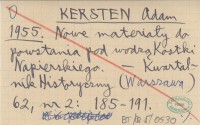 KERSTEN Adam
1955. Nowe materiały do
powstania pod wodzą Kostki
Napierskiego. — Kwartal-
nik Historyczny (Warszawa)
62, nr 2: 185-191.